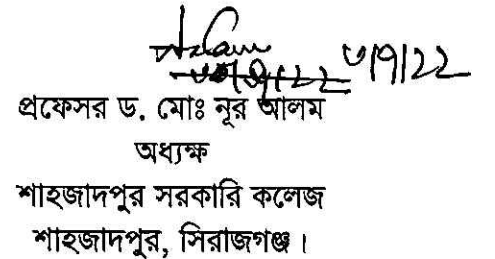 ৬/৭/২২
প্রফেসর ড. মোঃ নূর আলম
অধ্যক্ষ
শাহজাদপুর সরকারি কলেজ
শাহজাদপুর, সিরাজগঞ্জ।